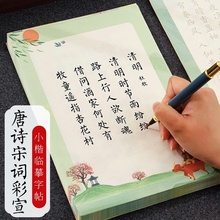 清明 杜牧
清明时节雨纷纷
路上行人欲断魂
借问酒家何处有
牧童遥指杏花村
小楷临摹字帖
唐诗宋词彩宣